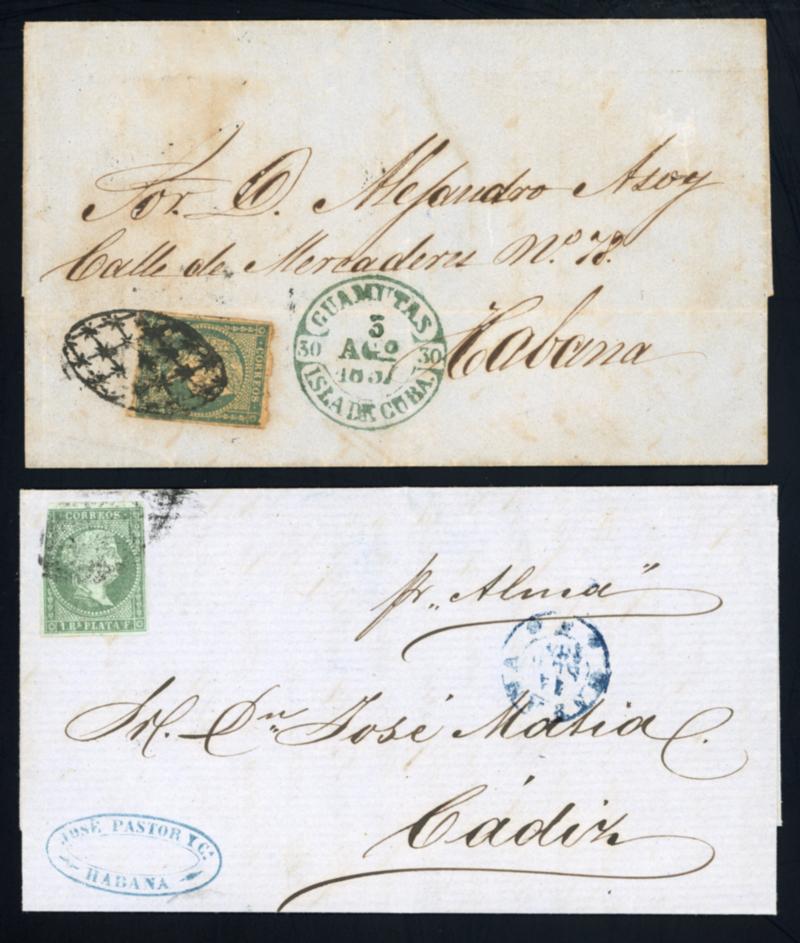 Sor. D. Alejandro Asoy
Calle de Mercaderes Nº. 73.
Habana
CORREOS
GUAMUTAS
30 30
3
AGO
1857
ISLA DE CUBA.
CORREOS
1 Rl. PLATA F.
pr. „Alma"
Sr. Dn. José Matia
Cádiz
JOSÉ PASTOR Y Ca.
HABANA